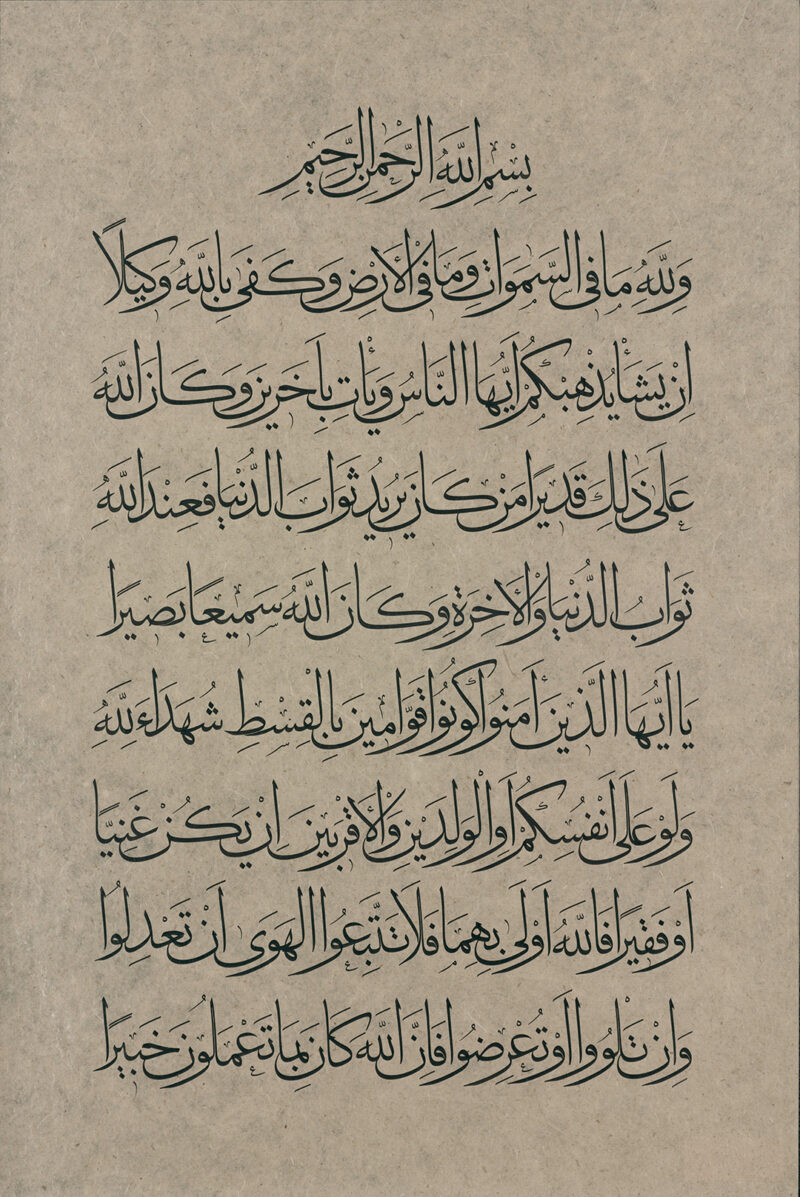 بِسْمِ اللَّهِ الرَّحْمٰنِ الرَّحِيمِ
وَلِلَّهِ مَا فِى السَّمٰوَاتِ وَمَا فِى الْاَرْضِ وَكَفَى بِاللَّهِ وَكِيلًا
اِنْ يَشَأْ يُذْهِبْكُمْ اَيُّهَا النَّاسُ وَيَأْتِ بِاٰخَرِينَ وَكَانَ اللَّهُ
عَلَى ذٰلِكَ قَدِيرًا مَنْ كَانَ يُرِيدُ ثَوَابَ الدُّنْيَا فَعِنْدَ اللَّهِ
ثَوَابُ الدُّنْيَا وَالْاٰخِرَةِ وَكَانَ اللَّهُ سَمِيعًا بَصِيرًا
يَا اَيُّهَا الَّذِينَ اٰمَنُوا كُونُوا قَوَّامِينَ بِالْقِسْطِ شُهَدَاءَ لِلَّهِ
وَلَوْ عَلَى اَنْفُسِكُمْ اَوِ الْوٰلِدَيْنِ وَالْاَقْرَبِينَ اِنْ يَكُنْ غَنِيًّا
اَوْ فَقِيرًا فَاللَّهُ اَوْلَى بِهِمَا فَلَا تَتَّبِعُوا الْهَوَى اَنْ تَعْدِلُوا
وَاِنْ تَلْوُوا اَوْ تُعْرِضُوا فَاِنَّ اللَّهَ كَانَ بِمَا تَعْمَلُونَ خَبِيرًا